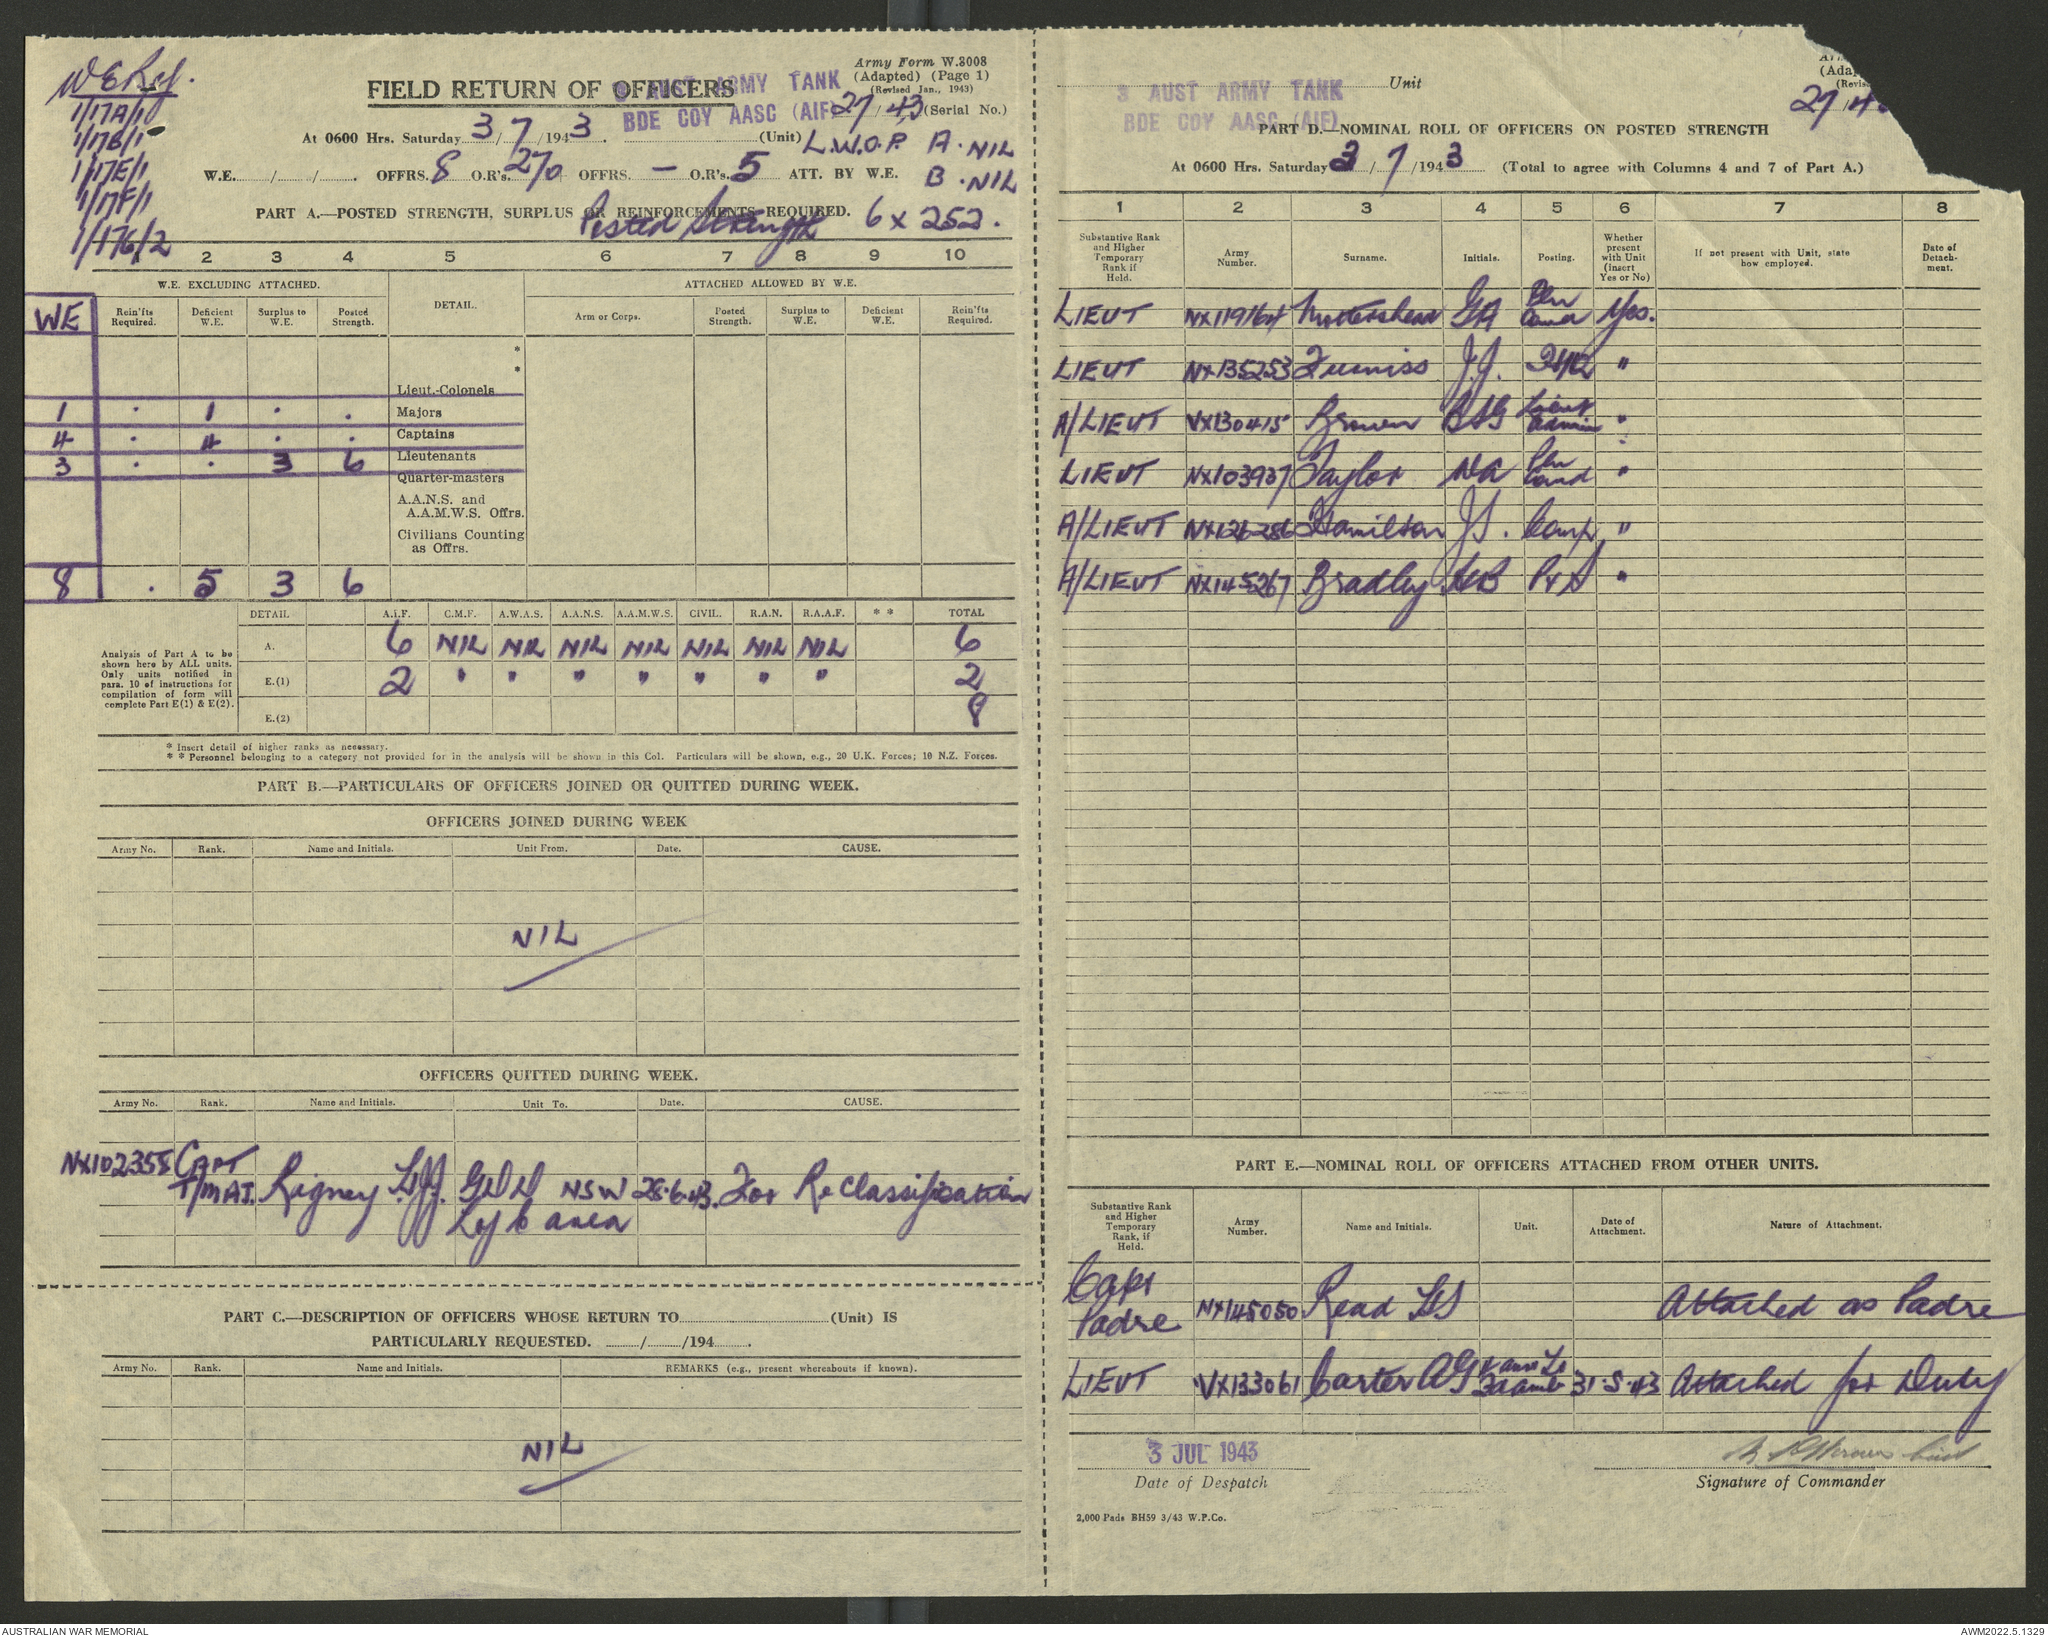 W E Ref.
1/17A/1
1/17B/1
1/17E/1
1/17F/1
1/17G/2
Army Form W.3008
(Adapted) (Page 1)
(Revised Jan., 1943)
FIELD RETURN OF OFFICERS
3 AUST ARMY TANK
BDE COY AASC (AIF)
27/43 (Serial No.)
At 0600 Hrs. Saturday 3/7/1943. (Unit)
L.W.O.P. A. NIL
B. NIL
W.E. / / . OFFRS. 8 O.R's. 270 OFFRS. — O.R's. 5 ATT. BY W.E.
PART A.—POSTED STRENGTH, SURPLUS OR REINFORCEMENTS REQUIRED.
Posted Strength 6 x 252.
2 3 4 5 6 7 8 9 10
W.E. EXCLUDING ATTACHED. DETAIL. ATTACHED ALLOWED BY W.E.
WE Rein'ts Required. Deficient W.E. Surplus to W.E. Posted Strength. Arm or Corps. Posted Strength. Surplus to W.E. Deficient W.E. Rein'ts Required.
*
*
Lieut.-Colonels
1 . 1 . . Majors
4 . 4 . . Captains
3 . . 3 6 Lieutenants
Quarter-masters
A.A.N.S. and
A.A.M.W.S. Offrs.
Civilians Counting
as Offrs.
8 . 5 3 6
DETAIL A.I.F. C.M.F. A.W.A.S. A.A.N.S. A.A.M.W.S. CIVIL. R.A.N. R.A.A.F. * * TOTAL
Analysis of Part A to be
shown here by ALL units.
Only units notified in
para. 10 of instructions for
compilation of form will
complete Part E(1) & E(2).
A. 6 NIL NIL NIL NIL NIL NIL NIL 6
E.(1) 2 " " " " " " " 2
E.(2) 8
* Insert detail of higher ranks as necessary.
* * Personnel belonging to a category not provided for in the analysis will be shown in this Col. Particulars will be shown, e.g., 20 U.K. Forces; 10 N.Z. Forces.
PART B.—PARTICULARS OF OFFICERS JOINED OR QUITTED DURING WEEK.
OFFICERS JOINED DURING WEEK
Army No. Rank. Name and Initials. Unit From. Date. CAUSE.
NIL
OFFICERS QUITTED DURING WEEK.
Army No. Rank. Name and Initials. Unit To. Date. CAUSE.
NX102355 CAPT
T/MAJ. Rigney L.J.J. GDD NSW 28.6.43. For Reclassification
L of C area
PART C.—DESCRIPTION OF OFFICERS WHOSE RETURN TO (Unit) IS
PARTICULARLY REQUESTED. / /194 .
Army No. Rank. Name and Initials. REMARKS (e.g., present whereabouts if known).
NIL
(Adap
(Revis
3 AUST ARMY TANK
BDE COY AASC (AIF)
Unit
27/4
PART D.—NOMINAL ROLL OF OFFICERS ON POSTED STRENGTH
At 0600 Hrs. Saturday 3/7/1943 (Total to agree with Columns 4 and 7 of Part A.)
1 2 3 4 5 6 7 8
Substantive Rank and Higher Temporary Rank if Held. Army Number. Surname. Initials. Posting. Whether present with Unit (insert Yes or No) If not present with Unit, state how employed. Date of Detach-ment.
LIEUT NX119164 Mottershead GA Pln Comd Yes.
LIEUT NX135253 Furniss J.J. "
A/LIEUT VX130415 Brown Lieut Admin "
LIEUT NX103937 Taylor Pln Comd "
A/LIEUT NX126286 Hamilton J.S. "
A/LIEUT NX145267 Bradley "
PART E.—NOMINAL ROLL OF OFFICERS ATTACHED FROM OTHER UNITS.
Substantive Rank and Higher Temporary Rank, if Held. Army Number. Name and Initials. Unit. Date of Attachment. Nature of Attachment.
Capt
Padre NX145050 Read Attached as Padre
LIEUT VX133061 Carter AG 31.5.43 Attached for Duty
3 JUL 1943
Date of Despatch
Signature of Commander
2,000 Pads BH59 3/43 W.P.Co.
AUSTRALIAN WAR MEMORIAL
AWM2022.5.1329